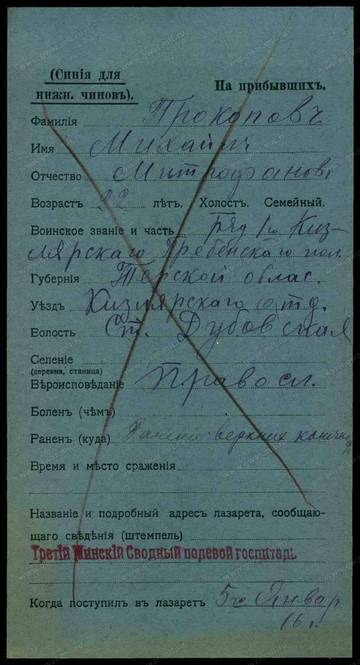 (Синія для
нижн. чиновъ).
На прибывшихъ.
Фамилія Прокоповъ
Имя Михаилъ
Отчество Митрофановъ
Возрастъ 22 лѣтъ. Холост. Семейный.
Воинское званіе и часть ряд. 1го Киз-
лярскаго Гребенскаго пол.
Губернія Терской облас.
Уѣздъ Кизлярскаго отд.
Волость ст. Дубовская
Селеніе
(деревня, станица)
Вѣроисповѣданіе Правосл.
Боленъ (чѣмъ)
Раненъ (куда) верхних конечн
Время и мѣсто сраженія
Названіе и подробный адресъ лазарета, сообщаю-
щаго свѣдѣнія (штемпель)
Третій Минскій Сводный полевой госпиталь.
Когда поступилъ въ лазаретъ 5го Январ
16 г.